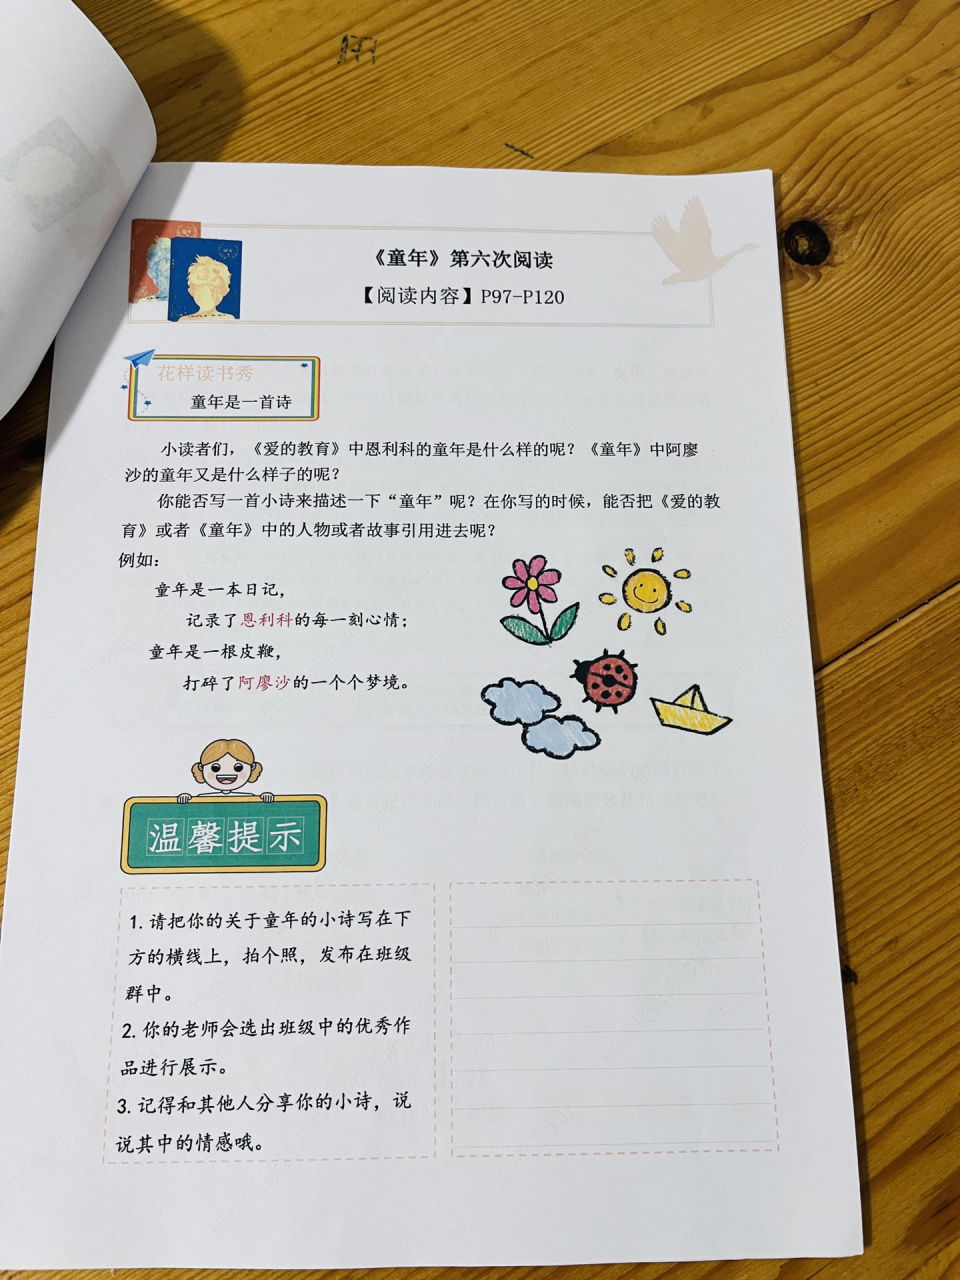 《童年》第六次阅读
【阅读内容】P97-P120
花样读书秀
童年是一首诗
小读者们，《爱的教育》中恩利科的童年是什么样的呢？《童年》中阿廖
沙的童年又是什么样子的呢？
你能否写一首小诗来描述一下“童年”呢？在你写的时候，能否把《爱的教
育》或者《童年》中的人物或者故事引用进去呢？
例如：
童年是一本日记，
记录了恩利科的每一刻心情；
童年是一根皮鞭，
打碎了阿廖沙的一个个梦境。
温馨提示
1. 请把你的关于童年的小诗写在下
方的横线上，拍个照，发布在班级
群中。
2. 你的老师会选出班级中的优秀作
品进行展示。
3. 记得和其他人分享你的小诗，说
说其中的情感哦。